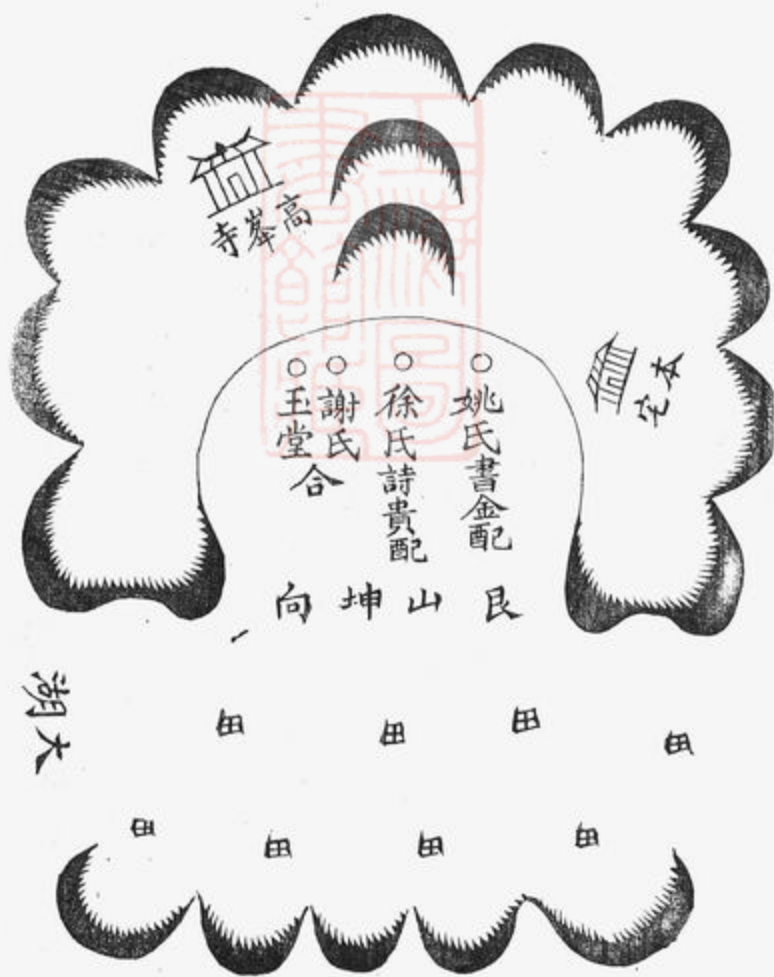 高峯寺
本宅
姚氏書金配
徐氏詩貴配
謝氏
玉堂合
艮山坤向
大湖
田
田
田
田
田
田
田
田